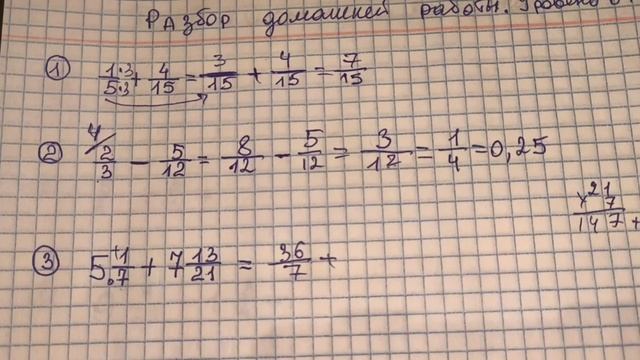 Разбор домашней работы.
① 1·3/5·3 + 4/15 = 3/15 + 4/15 = 7/15
② 4/ 2/3 - 5/12 = 8/12 - 5/12 = 3/12 = 1/4 = 0,25
× 21
7
147 +
③ 5 1/7 + 7 13/21 = 36/7 +